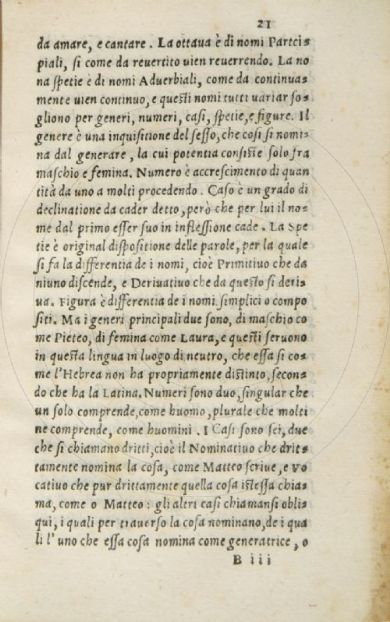 21
da amare, e cantare. La ottava è di nomi Partcis
piali, si come da reuertito uien reuerrendo. La no
na spetie è di nomi Aduerbiali, come da continuas
mente uien continuo, e questi nomi tutti uariar so=
gliono per generi, numeri, casi, spetie, e figure. Il
genere è una inquisitione del sesso, che cosi si nomi=
na dal generare, la cui potentia consiste solo fra
maschio e femina. Numero è accrescimento di quan
tità da uno a molti procedendo. Caso è un grado di
declinatione da cader detto, però che per lui il no=
me dal primo esser suo in inflessione cade. La Spe
tie è original dispositione delle parole, per la quale
si fa la differentia de i nomi, cioè Primitiuo che da
niuno discende, e Deriuatiuo che da questo si deris
ua. Figura è differentia de i nomi simplici o compo
siti. Ma i generi principali due sono, di maschio co
me Pieteo, di femina come Laura, e questi seruono
in questa lingua in luogo di neutro, che essa si co=
me l'Hebrea non ha propriamente distinto, secon=
do che ha la Latina. Numeri sono duo, singular che
un solo comprende, come huomo, plurale che molti
ne comprende, come huomini. I Casi sono sei, due
che si chiamano dritti, cioè il Nominatiuo che drit=
tamente nomina la cosa, come Matteo scriue, e Vo
catiuo che pur drittamente quella cosa istessa chia=
ma, come o Matteo: gli altri casi chiamansi obli=
qui, i quali per trauerso la cosa nominano, de i qua
li l'uno che essa cosa nomina come generatrice, o
B iii